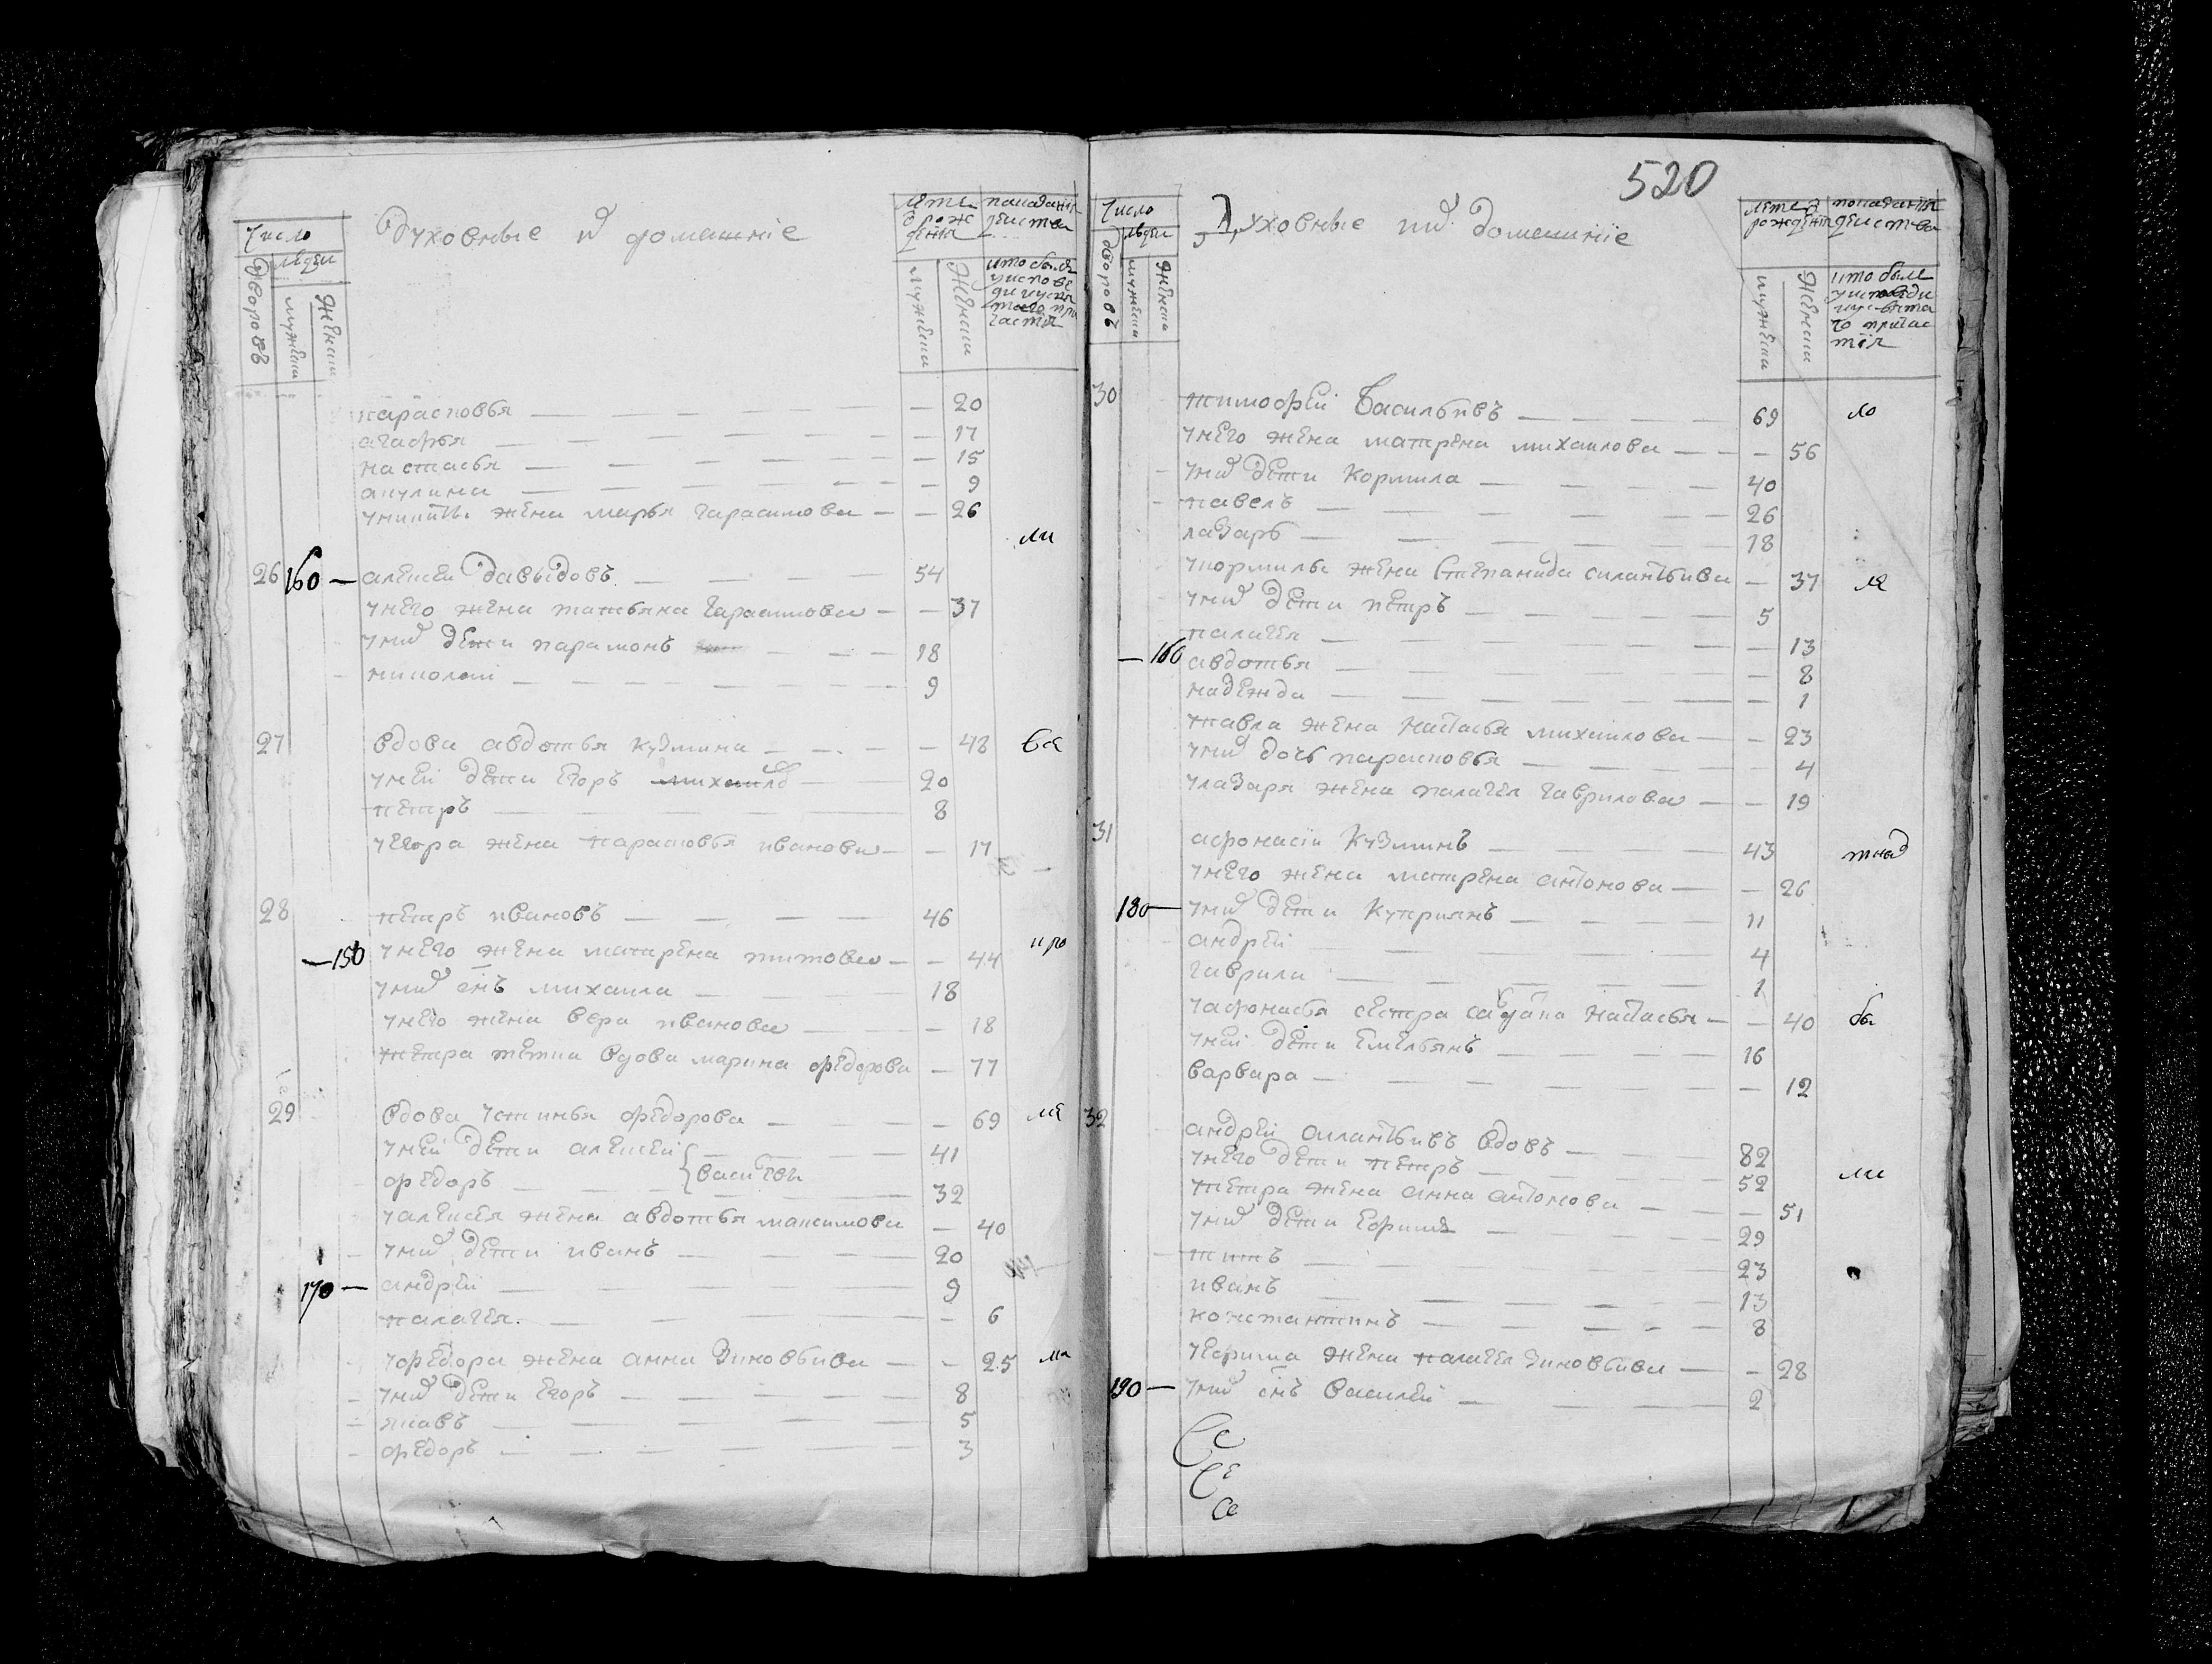 число
людеи
дворовъ
мужеска
женска
духовные и ихъ домашние
лета от рожде
ния
по показанию
действа
мужеска
женска
кто былъ
у испове
ди и у свя
таго при
частия
парасковья — 20
агафья — 17
настасья — 15
акулина — 9
у никиты жена марья гарасимова — 26
ли
26 160 — алексеи давыдовъ 54
у него жена татьяна гарасимова — 37
у них дети парамонъ 18
николаи 9
27 вдова авдотья кузмина — 48 вся
у неи дети егоръ михаила 20
петръ 8
у егора жена парасковья иванова — 17
28 петръ ивановъ 46
— 150 у него жена матрена титова — 44 про
у них снъ михаила 18
у него жена вера иванова — 18
петра тетка вдова марина федорова — 77
29 вдова устинья федорова — 69 ля
у неи дети алексеи 41
федоръ 32
у алексея жена авдотья максимова — 40
у них дети иванъ 20
170 — андреи 9
палагея — 6
у федора жена анна зиновьива — 25 ли
у них дети егоръ 8
5
федоръ 3
520
число
людеи
дворовъ
мужеска
женска
духовные и их домашнїе
лета от
рождения
показания
действа
мужеска
женска
кто былъ
у исповеди
и у свята
го причас
тїя
30 тимофеи васильивъ 69 ло
у него жена матрена михаилова — 56
у них дети кормила 40
павелъ 26
лазарь 18
у кормилы жена степанида силантьива — 37 ля
у них дети петръ 5
палагея — 13
— 160 авдотья — 8
надежда — 1
павла жена настасья михаилова — 23
у них дочь парасковья — 4
у лазаря жена палагея гаврилова — 19
31 афонасїи кузминъ 43
у него жена матрена антонова — 26
180 — у них дети куприянъ 11
андреи 4
гаврила 1
у афонасья сестра настасья — 40 бы
у неи дети емельянъ 16
варвара — 12
32 андреи силантьивъ вдовъ 82
у него дети петръ 52 ли
петра жена анна антонова — 51
у них дети ефимъ 29
титъ 23
иванъ 13
константинъ 8
у ефима жена палагея зиновьива — 28
190 — у них снъ василеи 2